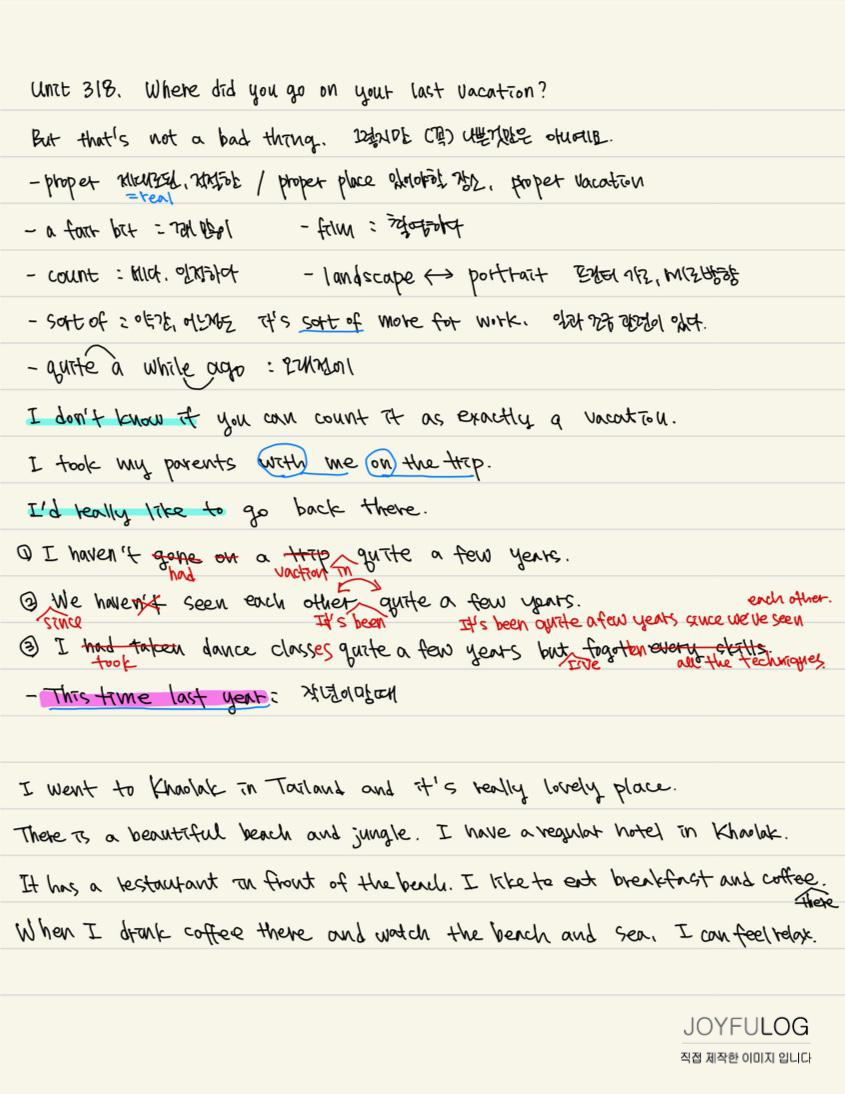 Unit 318. Where did you go on your last vacation?
But that's not a bad thing. 그렇지만 (꼭) 나쁜것만은 아니에요.
- proper 제대로된, 적절한 / proper place 있어야할 장소, proper vacation
=real
- a fair bit = 꽤 많이 - film : 촬영하다
- count : 세다. 인정하다 - landscape ↔ portrait 프린터 가로, 세로방향
- sort of : 약간, 어느정도 it's sort of more for work. 일과 조금 관련이 있다.
- quite a while ago : 오래전에
I don't know if you can count it as exactly a vacation.
I took my parents with me on the trip.
I'd really like to go back there.
① I haven't gone on a trip quite a few years.
had vaction in
② We haven't seen each other quite a few years. each other.
since It's been It's been quite a few years since we've seen
③ I had taken dance classes quite a few years but fogotten every skills.
took I've all the techniques.
- This time last year : 작년이맘때
I went to Khaolak in Tailand and it's really lovely place.
There is a beautiful beach and jungle. I have a regular hotel in Khaolak.
It has a restaurant in front of the beach. I like to eat breakfast and coffee.
there
When I drink coffee there and watch the beach and sea, I can feel relax.
JOYFULOG
직접 제작한 이미지 입니다